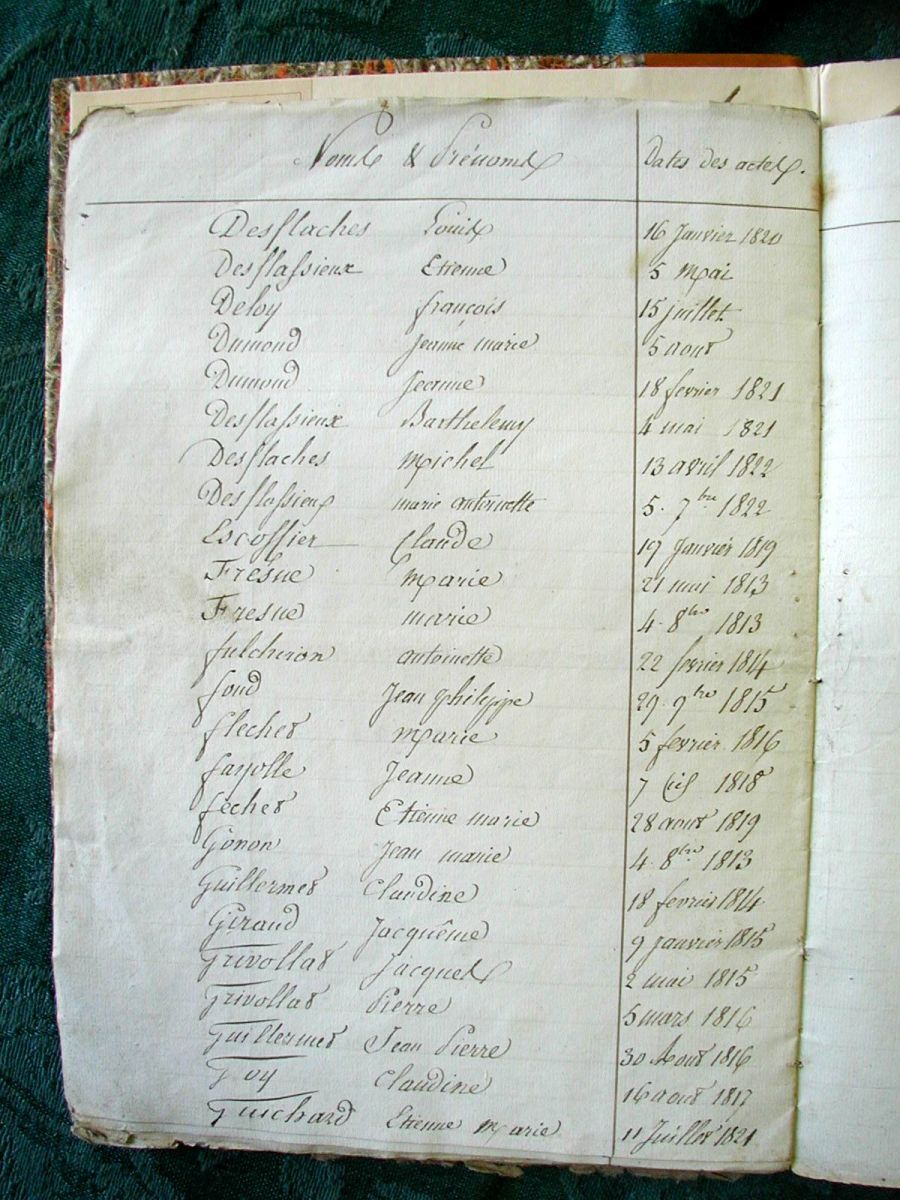 Noms & Prénoms Dates des actes.
Desflaches Louis 16 Janvier 1820
Desflassieux Etienne 5 Mai
Deloy françois 15 juillet
Dumond Jeanne marie 5 aout
Dumond Jeanne 18 fevrier 1821
Desflassieux Barthelemy 4 mai 1821
Desflaches Michel 13 avril 1822
Desflassieux marie antoinette 5. 7bre 1822
Escoffier Claude 19 Janvier 1819
Fresne Marie 21 mai 1813
Fresne marie 4. 8bre 1813
fulcheron antoinette 22 fevrier 1814
fond Jean philippe 29. 9bre 1815
flechet Marie 5 fevrier 1816
fayolle Jeanne 7 1818
fechet Etienne marie 28 aout 1819
Gonon Jean marie 4. 8bre 1813
Guillermet Claudine 18 fevrier 1814
Giraud Jacquême 9 janvier 1815
Grivollat Jacques 2 mai 1815
Grivollat Pierre 5 mars 1816
Guillermet Jean Pierre 30 Aout 1816
Goy Claudine 16 aout 1817
Guichard Etienne Marie 11 Juillet 1821